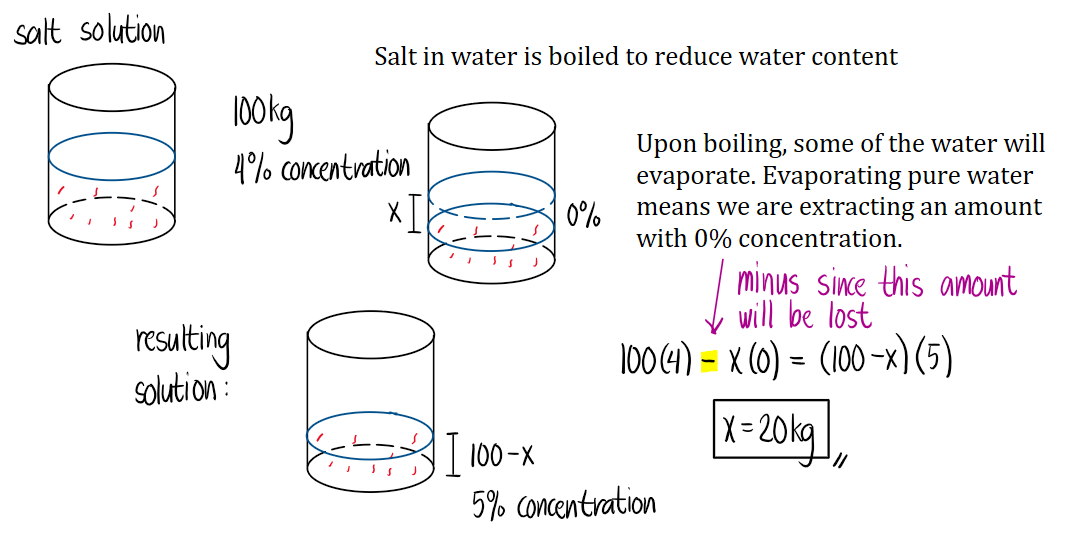 salt solution
Salt in water is boiled to reduce water content
100kg
4% concentration
x
0%
Upon boiling, some of the water will
evaporate. Evaporating pure water
means we are extracting an amount
with 0% concentration.
minus since this amount
will be lost
100(4) - x(0) = (100-x)(5)
x=20kg
resulting
solution:
100-x
5% concentration